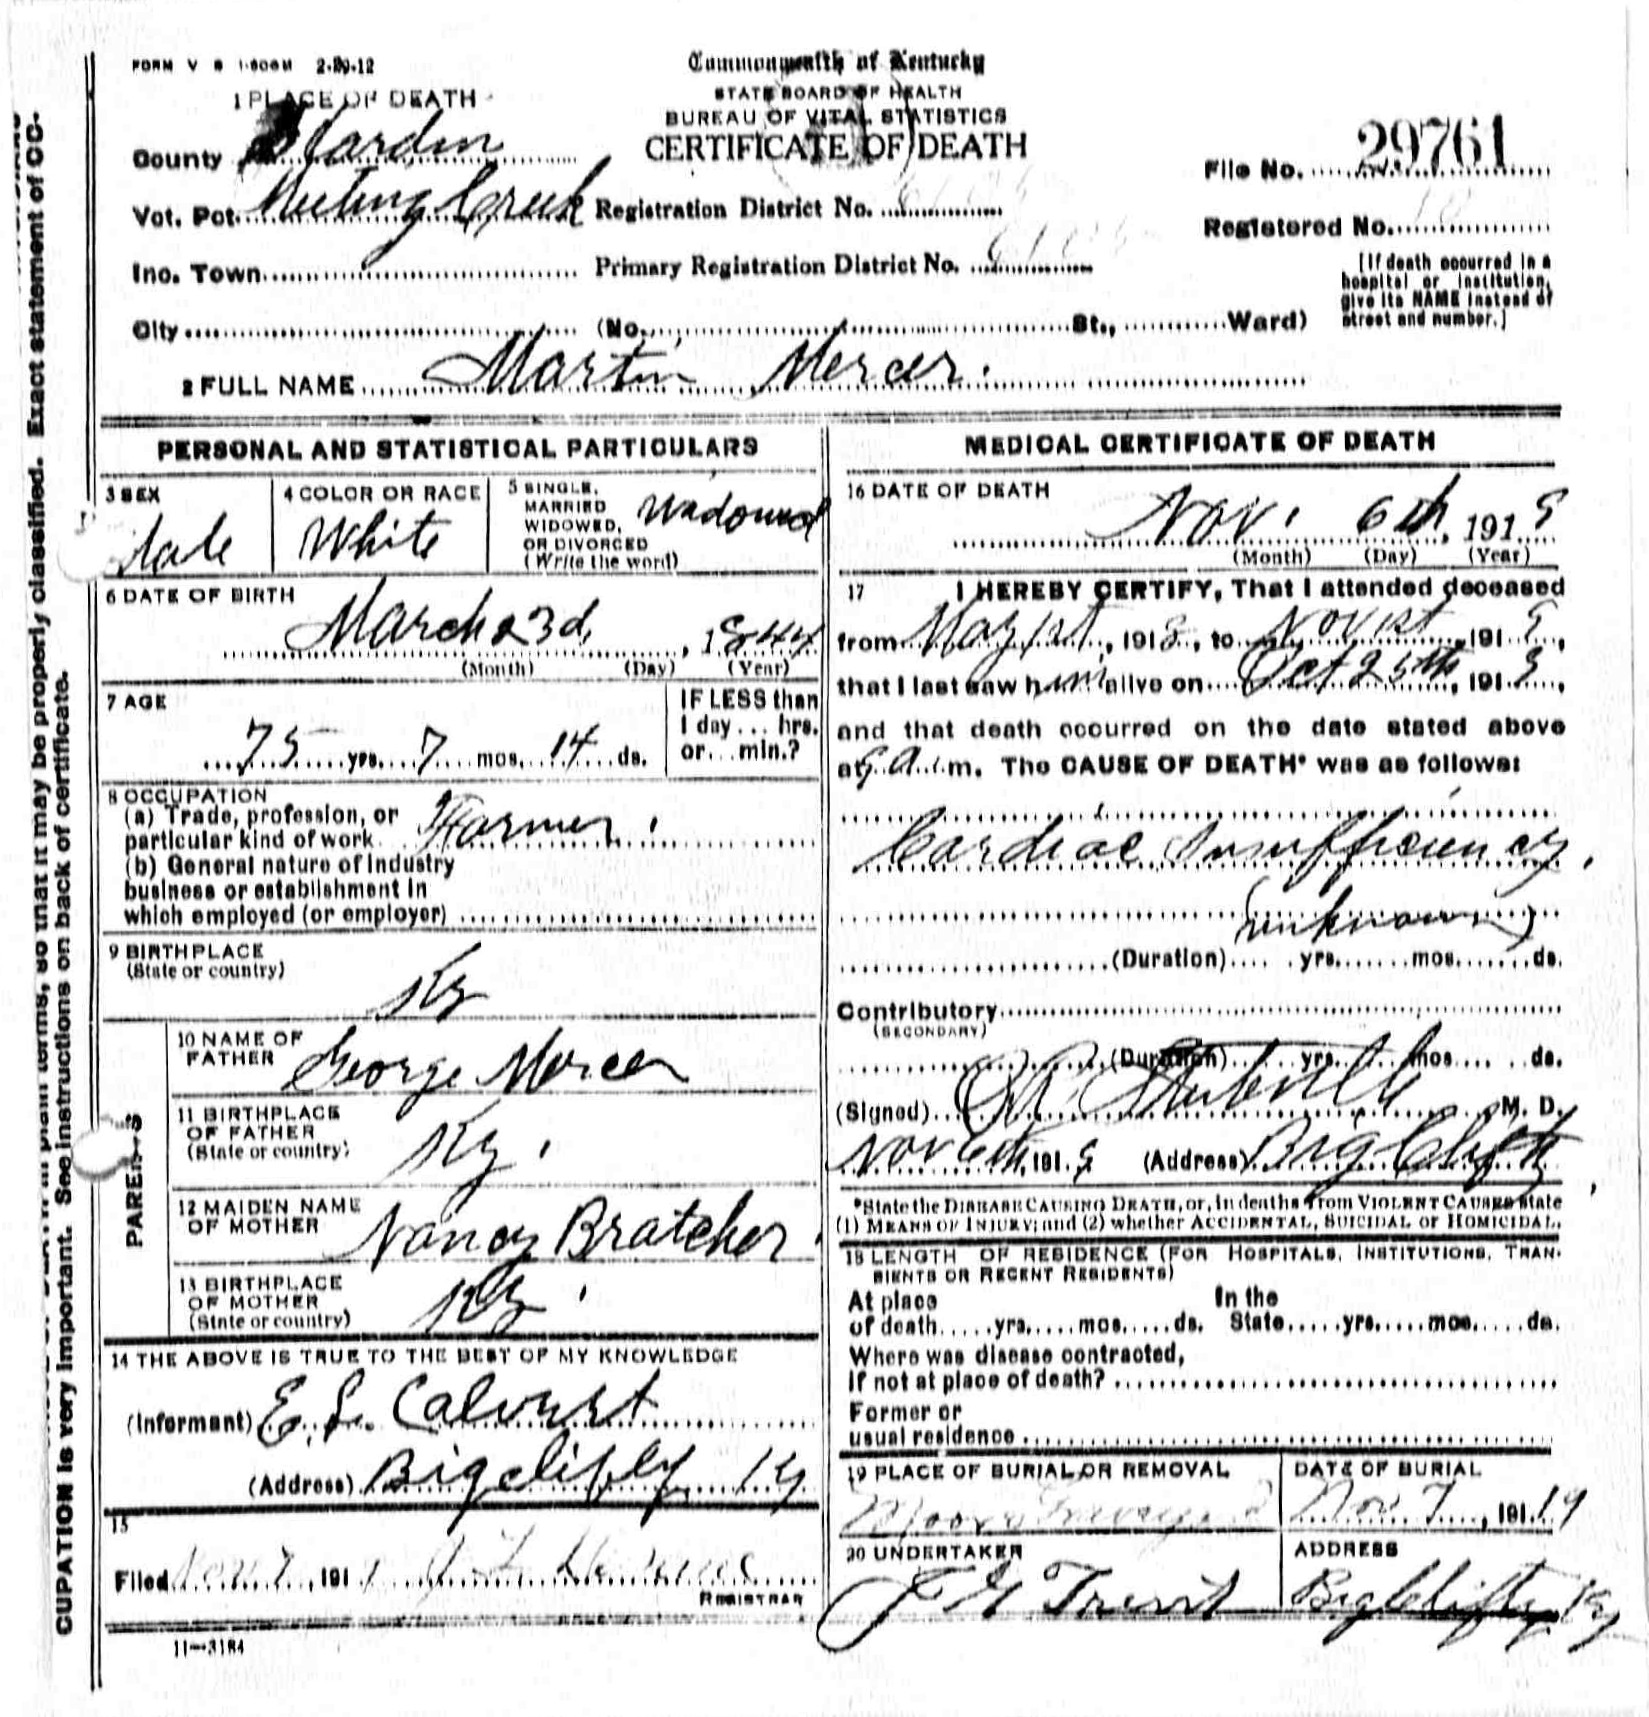 FORM V S 1-500M 2-29-12
Commonwealth of Kentucky
STATE BOARD OF HEALTH
BUREAU OF VITAL STATISTICS
CERTIFICATE OF DEATH
1 PLACE OF DEATH
County Hardin
File No. 29761
Vot. Pct. Meeting Creek Registration District No.
Registered No.
Inc. Town Primary Registration District No.
[If death occurred in a
hospital or institution,
give its NAME instead of
street and number.]
City (No. St., Ward)
2 FULL NAME Martin Mercer.
PERSONAL AND STATISTICAL PARTICULARS
3 SEX
Male
4 COLOR OR RACE
White
5 SINGLE,
MARRIED
WIDOWED,
OR DIVORCED
(Write the word)
Widowed
6 DATE OF BIRTH
March 23d, 1844
(Month) (Day) (Year)
7 AGE
75 yrs. 7 mos. 14 ds.
IF LESS than
1 day ... hrs.
or ... min.?
8 OCCUPATION
(a) Trade, profession, or
particular kind of work Farmer.
(b) General nature of industry
business or establishment in
which employed (or employer)
9 BIRTHPLACE
(State or country)
Ky
PARENTS
10 NAME OF
FATHER George Mercer
11 BIRTHPLACE
OF FATHER
(State or country) Ky.
12 MAIDEN NAME
OF MOTHER Nancy Bratcher
13 BIRTHPLACE
OF MOTHER
(State or country) Ky.
14 THE ABOVE IS TRUE TO THE BEST OF MY KNOWLEDGE
(Informant) E. L. Calvert
(Address) Bigclifty, Ky
15
Filed Nov 7, 191
REGISTRAR
11-3184
MEDICAL CERTIFICATE OF DEATH
16 DATE OF DEATH
Nov. 6th, 1919
(Month) (Day) (Year)
17 I HEREBY CERTIFY, That I attended deceased
from 1st, 1918, to Nov 1st, 1919,
that I last saw him alive on Oct 25th, 1919,
and that death occurred on the date stated above
at 9 a.m. The CAUSE OF DEATH* was as follows:
Cardiac Insufficiency.
(unknown)
(Duration) yrs. mos. ds.
Contributory
(SECONDARY)
(Duration) yrs. mos. ds.
(Signed) M. D.
Nov 6th, 1919 (Address) Big Clifty
*State the DISEASE CAUSING DEATH, or, in deaths from VIOLENT CAUSES state
(1) MEANS OF INJURY; and (2) whether ACCIDENTAL, SUICIDAL or HOMICIDAL.
18 LENGTH OF RESIDENCE (FOR HOSPITALS, INSTITUTIONS, TRAN-
SIENTS OR RECENT RESIDENTS)
At place In the
of death yrs. mos. ds. State yrs. mos. ds.
Where was disease contracted,
If not at place of death?
Former or
usual residence
19 PLACE OF BURIAL OR REMOVAL
DATE OF BURIAL
Nov 7, 19119
20 UNDERTAKER
ADDRESS
Big Clifty, Ky
CUPATION is very important. See instructions on back of certificate.
terms, so that it may be properly classified. Exact statement of OC-